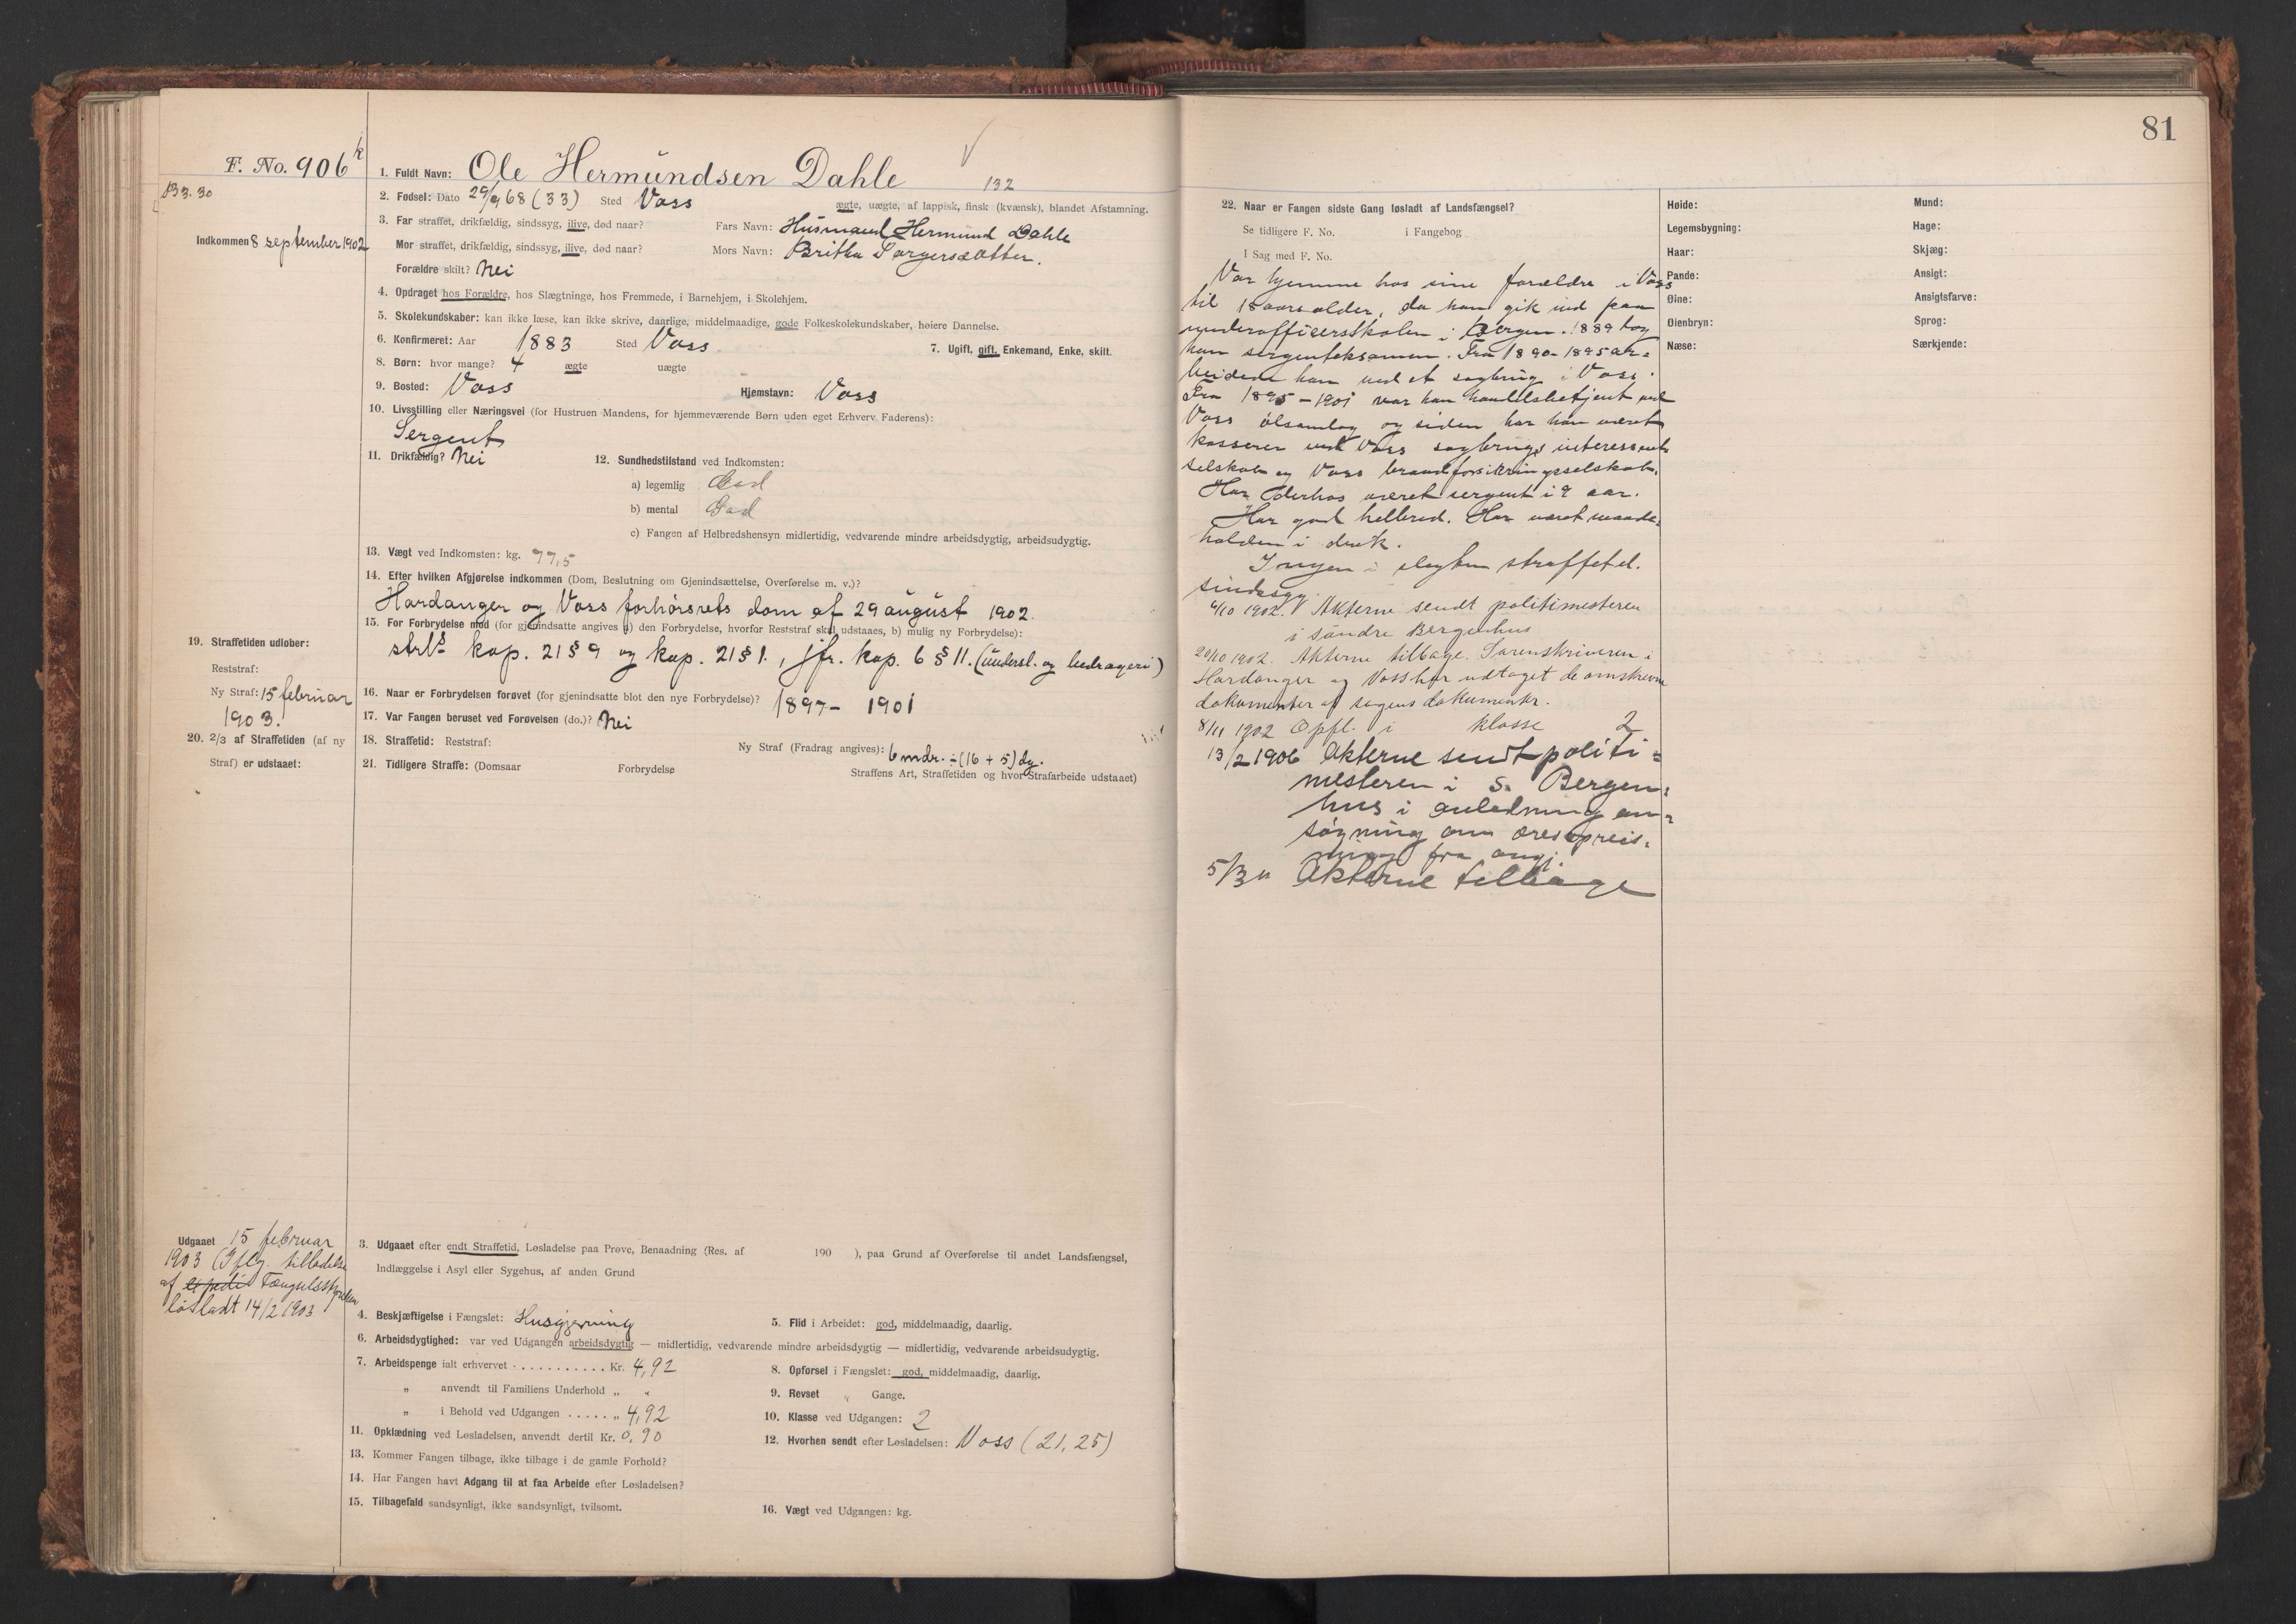 F. No. 906 k
B3.30
Indkommen 8 september 1902
1. Fuldt Navn: Ole Hermundsen Dahle
132
2. Fødsel: Dato 29/9 68 (33) Sted Voss ægte, uægte, af lappisk, finsk (kvænsk), blandet Afstamning.
3. Far straffet, drikfældig, sindssyg, ilive, død naar? Fars Navn: Husmand Hermund Dahle
Mor straffet, drikfældig, sindssyg, ilive, død naar? Mors Navn: Britha
Forældre skilt? Nei
4. Opdraget hos Forældre, hos Slægtninge, hos Fremmede, i Barnehjem, i Skolehjem.
5. Skolekundskaber: kan ikke læse, kan ikke skrive, daarlige, middelmaadige, gode Folkeskolekundskaber, høiere Dannelse.
6. Konfirmeret: Aar 1883 Sted Voss 7. Ugift, gift, Enkemand, Enke, skilt.
8. Børn: hvor mange? 4 ægte uægte
9. Bosted: Voss Hjemstavn: Voss
10. Livsstilling eller Næringsvei (for Hustruen Mandens, for hjemmeværende Børn uden eget Erhverv, Faderens):
Sergent
11. Drikfældig? Nei 12. Sundhedstilstand ved Indkomsten:
a) legemlig God
b) mental God
c) Fangen af Helbredshensyn midlertidig, vedvarende mindre arbeidsdygtig, arbeidsudygtig.
13. Vægt ved Indkomsten: kg. 77,5
14. Efter hvilken Afgjørelse indkommen (Dom, Beslutning om Gjenindsættelse, Overførelse m. v.)?
Hardanger og Voss forhørsrets dom af 29 august 1902.
15. For Forbrydelse mod (for gjenindsatte angives a) den Forbrydelse, hvorfor Reststraf skal udstaaes, b) mulig ny Forbrydelse):
strl's kap. 21 § 9 og kap. 21 § 1., jfr. kap. 6 § 11. (undersl. og bedrageri)
19. Straffetiden udløber:
Reststraf:
Ny Straf: 15 februar
1903.
16. Naar er Forbrydelsen forøvet (for gjenindsatte blot den nye Forbrydelse)? 1897 - 1901
17. Var Fangen beruset ved Forøvelsen (do.)? Nei
20. 2/3 af Straffetiden (af ny
Straf) er udstaaet:
18. Straffetid: Reststraf: Ny Straf (Fradrag angives): 6 mdr. ÷ (16 + 5) dg.
21. Tidligere Straffe: (Domsaar Forbrydelse Straffens Art, Straffetiden og hvor Strafarbeide udstaaet)
Udgaaet 15 februar
1903 (Iflg. tilladelse
af Fængselsstyrelsen
løsladt 14/2 1903
3. Udgaaet efter endt Straffetid, Løsladelse paa Prøve, Benaadning (Res. af 190 ), paa Grund af Overførelse til andet Landsfængsel,
Indlæggelse i Asyl eller Sygehus, af anden Grund
4. Beskjæftigelse i Fængslet: Husgjerning 5. Flid i Arbeidet: god, middelmaadig, daarlig.
6. Arbeidsdygtighed: var ved Udgangen arbeidsdygtig — midlertidig, vedvarende mindre arbeidsdygtig — midlertidig, vedvarende arbeidsudygtig.
7. Arbeidspenge ialt erhvervet . . . . . . . . . . . Kr. 4,92 8. Opførsel i Fængslet: god, middelmaadig, daarlig.
„ anvendt til Familiens Underhold „ „ 9. Revset „ Gange.
„ i Behold ved Udgangen . . . . . „ 4,92 10. Klasse ved Udgangen: 2
11. Opklædning ved Løsladelsen, anvendt dertil Kr. 0,90 12. Hvorhen sendt efter Løsladelsen: Voss (21,25)
13. Kommer Fangen tilbage, ikke tilbage i de gamle Forhold?
14. Har Fangen havt Adgang til at faa Arbeide efter Løsladelsen?
15. Tilbagefald sandsynligt, ikke sandsynligt, tvilsomt. 16. Vægt ved Udgangen: kg.
81
22. Naar er Fangen sidste Gang løsladt af Landsfængsel?
Se tidligere F. No. i Fangebog
I Sag med F. No.
Var hjemme hos sine forældre i Voss
til 18 aars alder, da han gik ind paa
underofficersskolen i Bergen. 1889 tog
han sergenteksamen. Fra 1890-1895 ar-
beidede han ved et sagbrug i Voss.
Fra 1895-1901 var han handelsbetjent ved
Voss ølsamlag og siden har han været
kasserer ved Voss sagbrugs interessent-
selskab og Voss brandforsikringsselskab.
Har derhos været sergent i 9 aar.
Har god helbred. Har været maade-
holden i druk.
Ingen i slegten straffet el.
sindssyg.
4/10 1902. Akterne sendt politimesteren
i søndre Bergenhus
20/10 1902. Akterne tilbage. Sorenskriveren i
Hardanger og Voss har udtaget de omskrevne
dokumenter af sagens dokumenter.
8/11 1902 Opfl. i klasse 2
13/2 1906 Akterne sendt politi-
mesteren i S. Bergen-
hus i anledning an-
søgning om æresopreis-
ning fra ang.
5/3 " Akterne tilbage
Høide:
Legemsbygning:
Haar:
Pande:
Øine:
Øienbryn:
Næse:
Mund:
Hage:
Skjæg:
Ansigt:
Ansigtsfarve:
Sprog:
Særkjende: